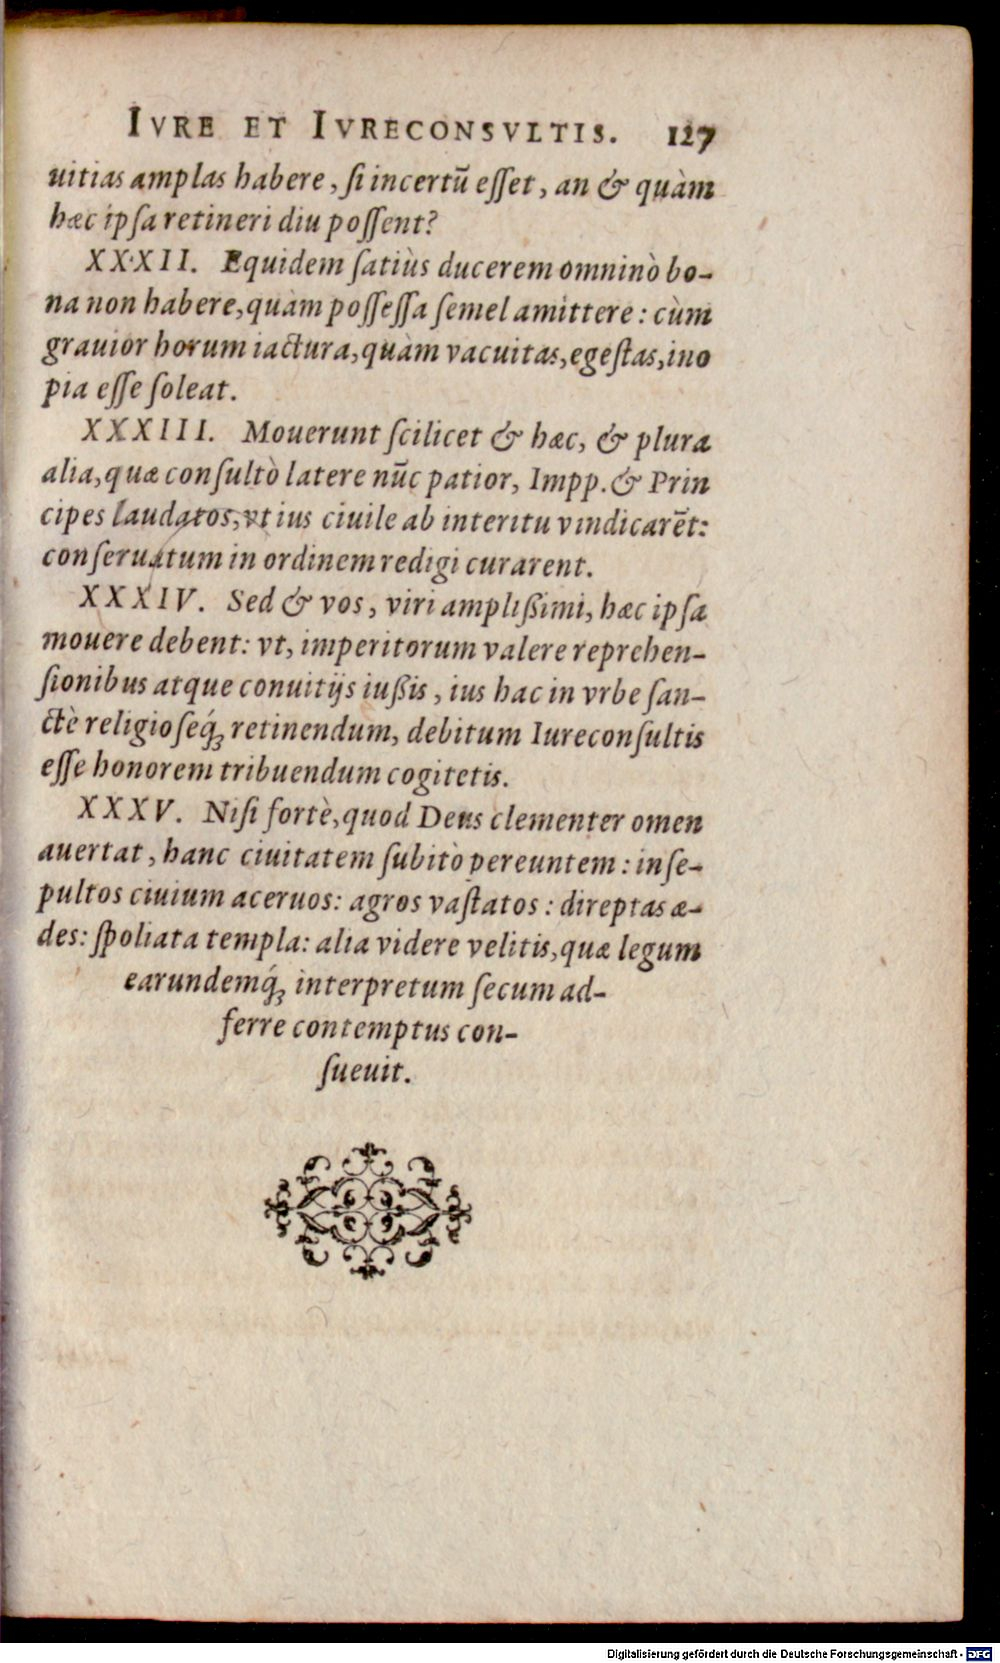 IVRE ET IVRECONSVLTIS. 127
uitias amplas habere, ſi incertū eſſet, an & quàm
hæc ipſa retineri diu poſſent?
XXXII. Equidem ſatiùs ducerem omninò bo-
na non habere, quàm poſſeſſa ſemel amittere: cùm
grauior horum iactura, quàm vacuitas, egeſtas, ino
pia eſſe ſoleat.
XXXIII. Mouerunt ſcilicet & hæc, & plura
alia, quæ conſultò latere nūc patior, Impp. & Prin
cipes laudatos, vt ius ciuile ab interitu vindicarēt:
conſeruatum in ordinem redigi curarent.
XXXIV. Sed & vos, viri amplißimi, hæc ipſa
mouere debent: vt, imperitorum valere reprehen-
ſionibus atque conuitijs iußis, ius hac in vrbe ſan-
ctè religioſeq́ꝫ retinendum, debitum Iureconſultis
eſſe honorem tribuendum cogitetis.
XXXV. Niſi fortè, quod Deus clementer omen
auertat, hanc ciuitatem ſubitò pereuntem: inſe-
pultos ciuium aceruos: agros vaſtatos: direptas æ-
des: ſpoliata templa: alia videre velitis, quæ legum
earundemq́ꝫ interpretum ſecum ad-
ferre contemptus con-
ſueuit.
Digitalisierung gefördert durch die Deutsche Forschungsgemeinschaft - DFG